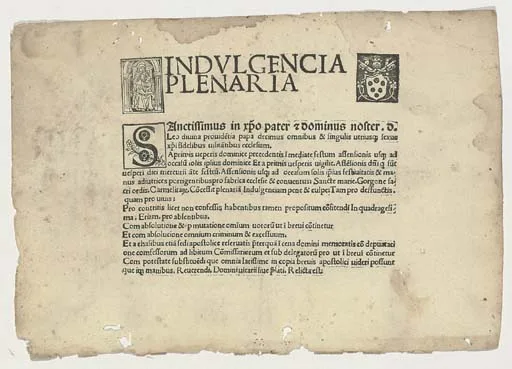 INDVLGENCIA
PLENARIA
SAnctissimus in xp̄o pater ⁊ dominus noster. d.
Leo diuina prouidētia papa decimus omnibus & singulis utriusq; sexus
xp̄i fidelibus
A primis uesperis dominice precedentis īmediate festum assensionis usq; ad
occasū solis ipsius dominice Et a primis uesperis uigilie Assēsionis
diei Assensionis usq; ad occasum solis ipsius festiuitatis &
adiutrices porrigentibus pro fabrica ecclesie & conuentus Sancte marie Gorgone
ordin. Carmelitaȝ. Cōcessit plenariā Indulgentiam pene & culpe Tam pro defunctis
quam pro uiuis:
Pro contritis licet non confessis habentibus tamen propositum cōfitendi In quadragesi
ma: Etium. pro absentibus.
Com absolutione & ꝑmutatione omium uotorū ut ī breui cōtinetur
Et com absolutione omnium criminum & excessuum.
Et a casibus etiā sedi apostolice reseruatis preterquā ī cena domini
one confessorum ad libitum Comissariorum et sub delegatorū pro ut ī breui cōtinetur
Com potestate substituēdi que omnia latissime in copia breuis apostolici uideri possunt
que in manibus. Reuerendi. Domini uicarii Relicta est: